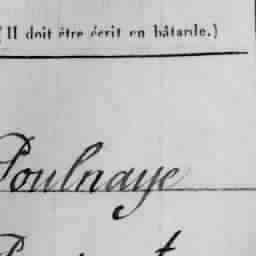 (Il doit être écrit en bâtarde.)
Poulnaye